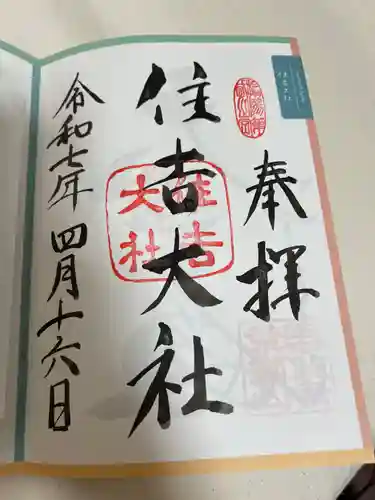 奉拝
住吉大社
令和七年四月十六日
住吉
大社
住吉大社